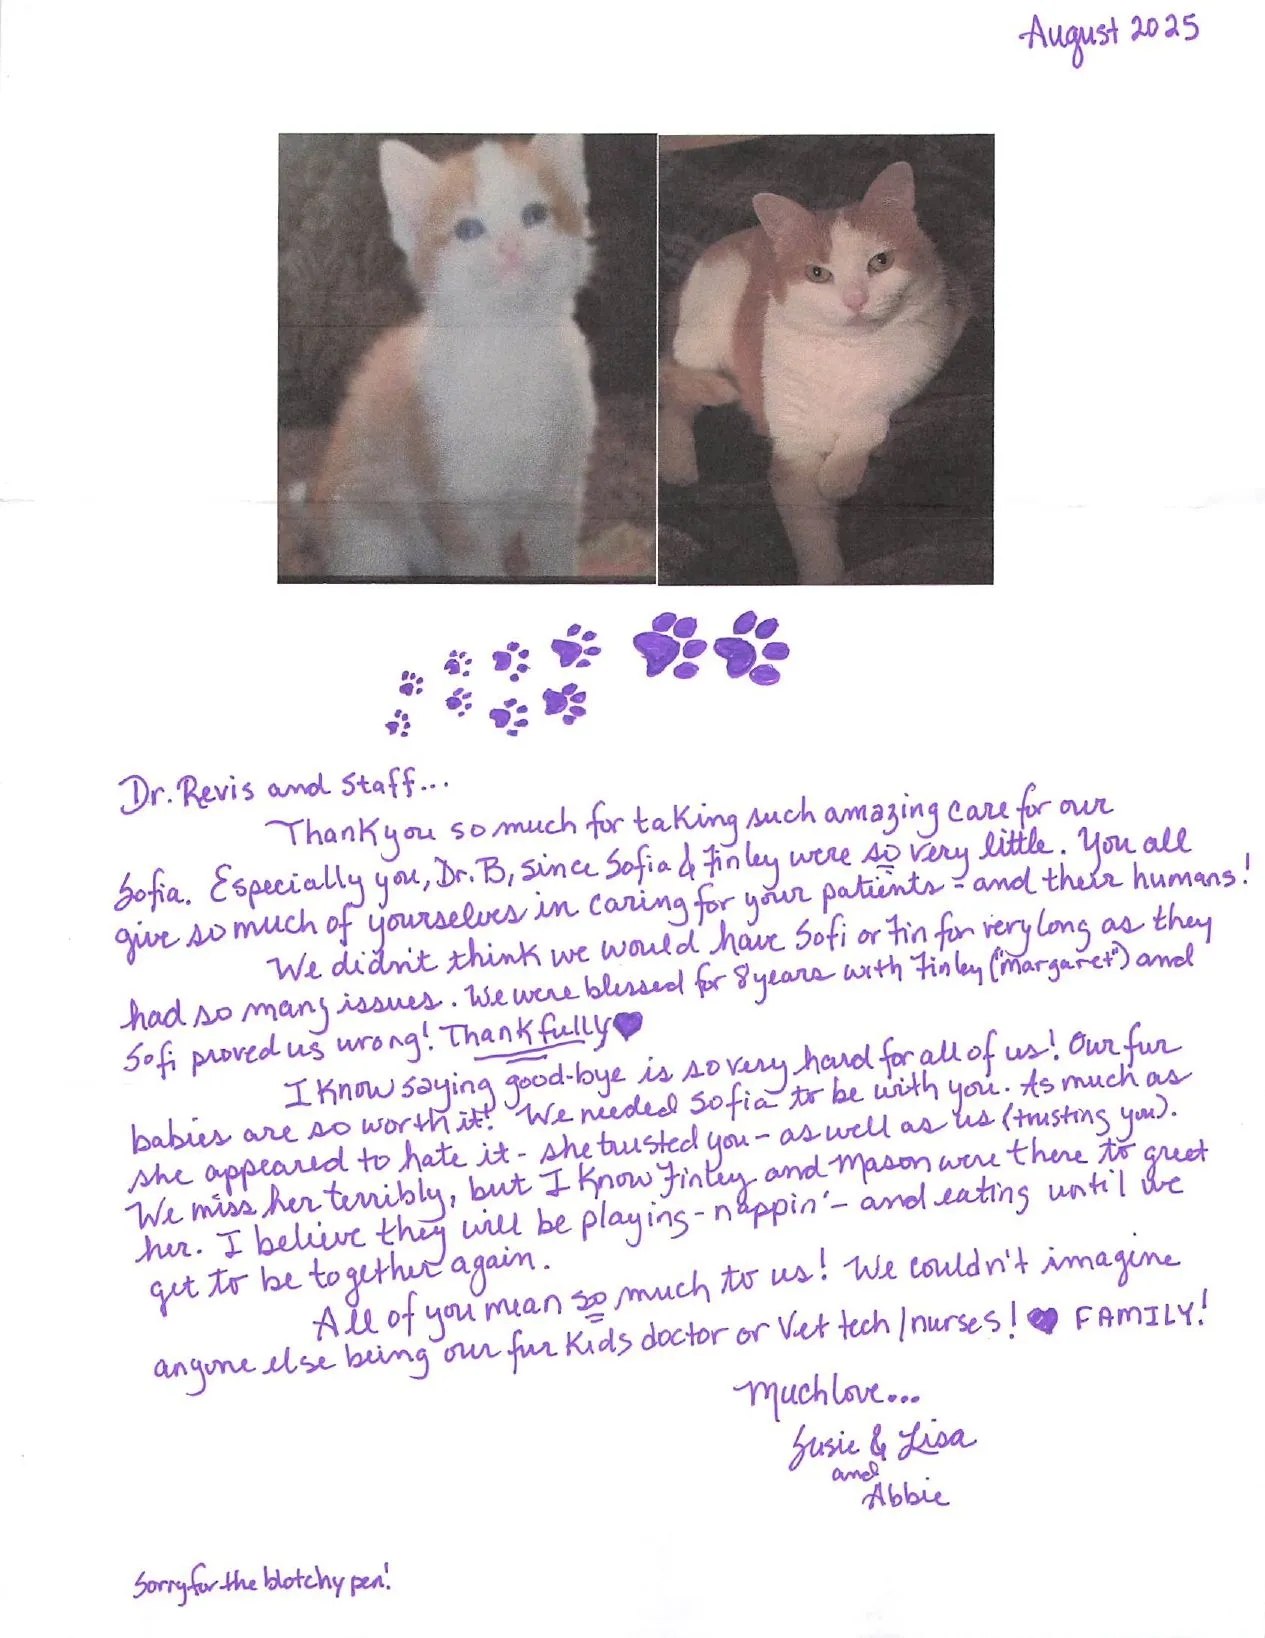 August 2025
Dr. Revis and Staff...
Thank you so much for taking such amazing care for our
Sofia. Especially you, Dr. B, since Sofia & Finley were so very little. You all
give so much of yourselves in caring for your patients - and their humans!
We didn't think we would have Sofi or Fin for very long as they
had so many issues. We were blessed for 8 years with Finley ("Margaret") and
Sofi proved us wrong! Thankfully♥
I know saying good-bye is so very hard for all of us! Our fur
babies are so worth it! We needed Sofia to be with you. As much as
she appeared to hate it - she trusted you - as well as us (trusting you).
We miss her terribly, but I know Finley and Mason were there to greet
her. I believe they will be playing - nappin' - and eating until we
get to be together again.
All of you mean so much to us! We couldn't imagine
anyone else being our fur kids doctor or Vet tech/nurses! ♥ FAMILY!
Much love...
Susie & Lisa
and
Abbie
Sorry for the blotchy pen!